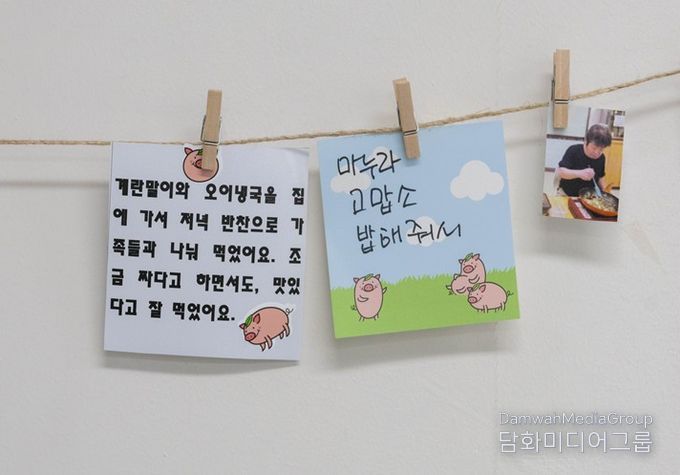 계란말이와 오이냉국을 집
에 가서 저녁 반찬으로 가
족들과 나눠 먹었어요. 조
금 짜다고 하면서도, 맛있
다고 잘 먹었어요.
마누라
고맙소
밥해줘서
DamwahMediaGroup
담화미디어그룹